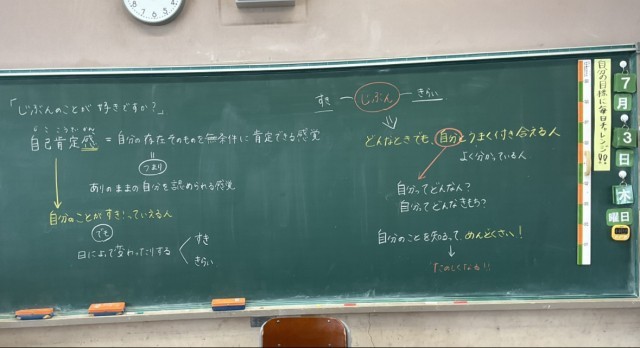 「じぶんのことが 好きですか？」
じこ こうてい かん
自己肯定感 = 自分の存在そのものを無条件に肯定できる感覚
つまり
ありのままの自分を認められる感覚
自分のことがすき!っていえる人
でも
日によって変わったりする
すき
きらい
すき ― じぶん ― きらい
どんなときでも、自分とうまく付き合える人
よく分かっている人
自分ってどんな人?
自分ってどんなきもち?
自分のことを知るって、めんどくさい!
たのしくなる!!
自分の目標に毎日チャレンジ!!
7
月
3
日
木
曜日